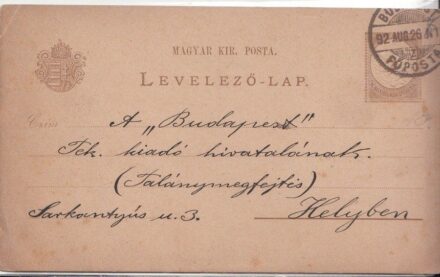 MAGYAR KIR. POSTA.
LEVELEZŐ-LAP.
BUDAPEST
92 AUG. 26
FŐPOSTA
Czim
A „Budapest"
Tek. kiadó hivatalának.
(Talánymegfejtés)
Sarkantyús u. 3.
Helyben